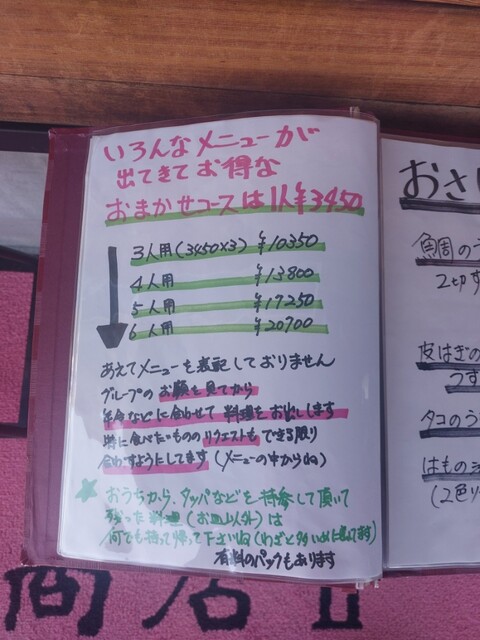 いろんなメニューが
出てきてお得な
おまかせコースは1人¥3450
3人用(3450×3) ¥10350
4人用 ¥13800
5人用 ¥17250
6人用 ¥20700
あえてメニューを表記しておりません
グループのお顔を見てから
年令などに合わせて料理をお出しします
特に食べたいもののリクエストもできる限り
合わすようにしてます(メニューの中からね)
おうちから、タッパなどを持参して頂いて
残った料理(お皿以外)は
何でも持って帰って下さいね(わざと多いめに出してます)
有料のパックもあります
おさし
鯛のう
2切す
皮はぎの
うす
タコのう
はもの
(2色
商店